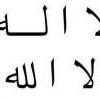 لا الـه
لا الله